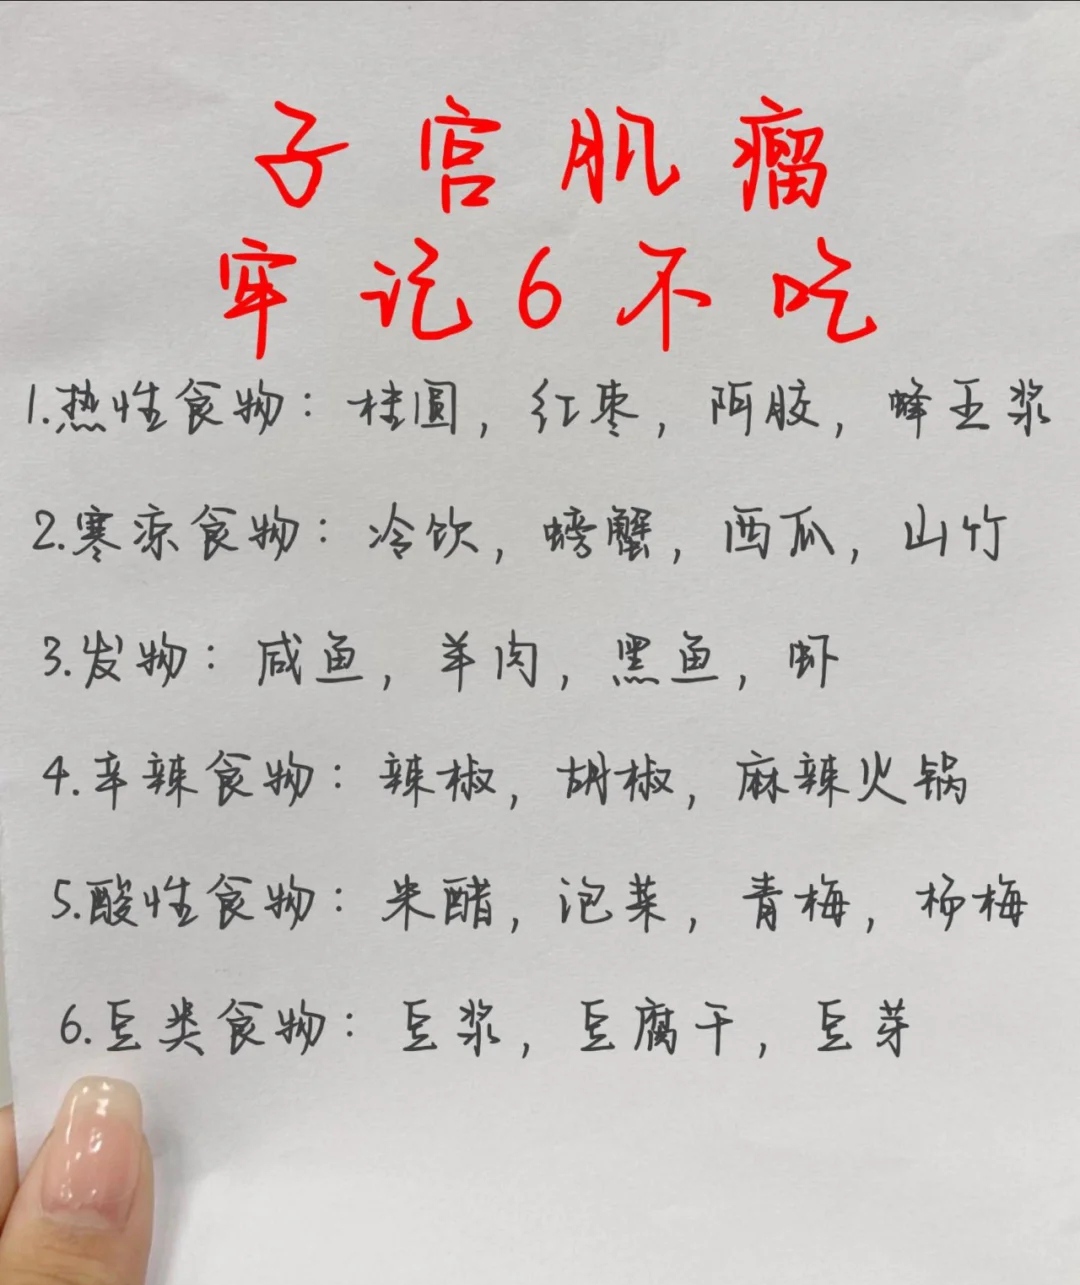 子宫肌瘤
牢记6不吃
1.热性食物：桂圆，红枣，阿胶，蜂王浆
2.寒凉食物：冷饮，螃蟹，西瓜，山竹
3.发物：咸鱼，羊肉，黑鱼，虾
4.辛辣食物：辣椒，胡椒，麻辣火锅
5.酸性食物：米醋，泡菜，青梅，杨梅
6.豆类食物：豆浆，豆腐干，豆芽